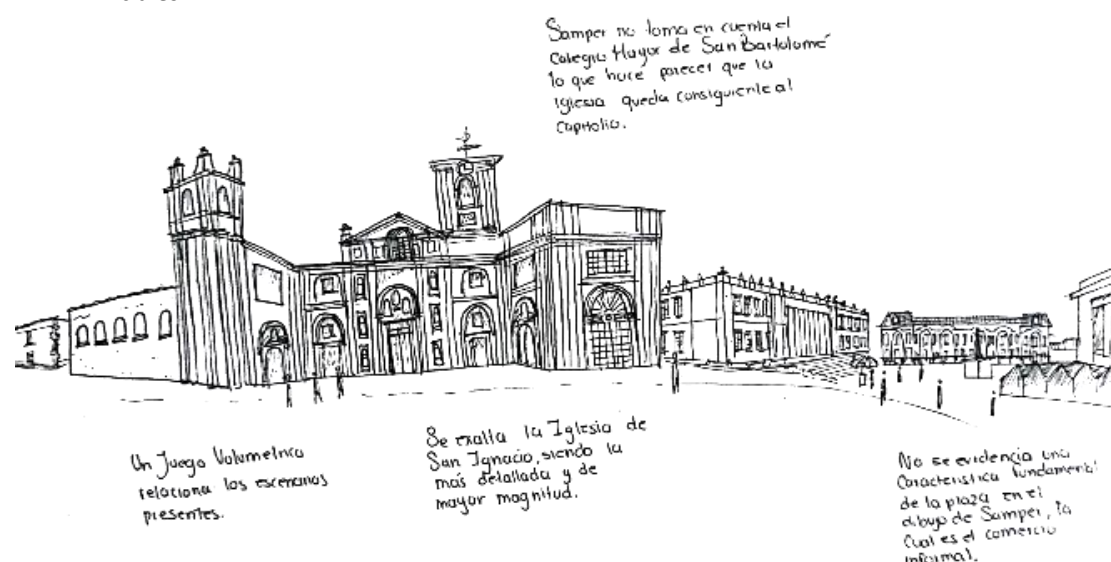 Samper no toma en cuenta el
Colegio Mayor de San Bartolomé
lo que hace parecer que la
iglesia queda consiguiente al
Capitolio.
Un Juego Volumetrico
relaciona los escenarios
presentes.
Se exalta la Iglesia de
San Ignacio, siendo la
más detallada y de
mayor magnitud.
No se evidencia una
Caracteristica fundamental
de la plaza en el
dibujo de Samper, la
Cual es el comercio
informal.